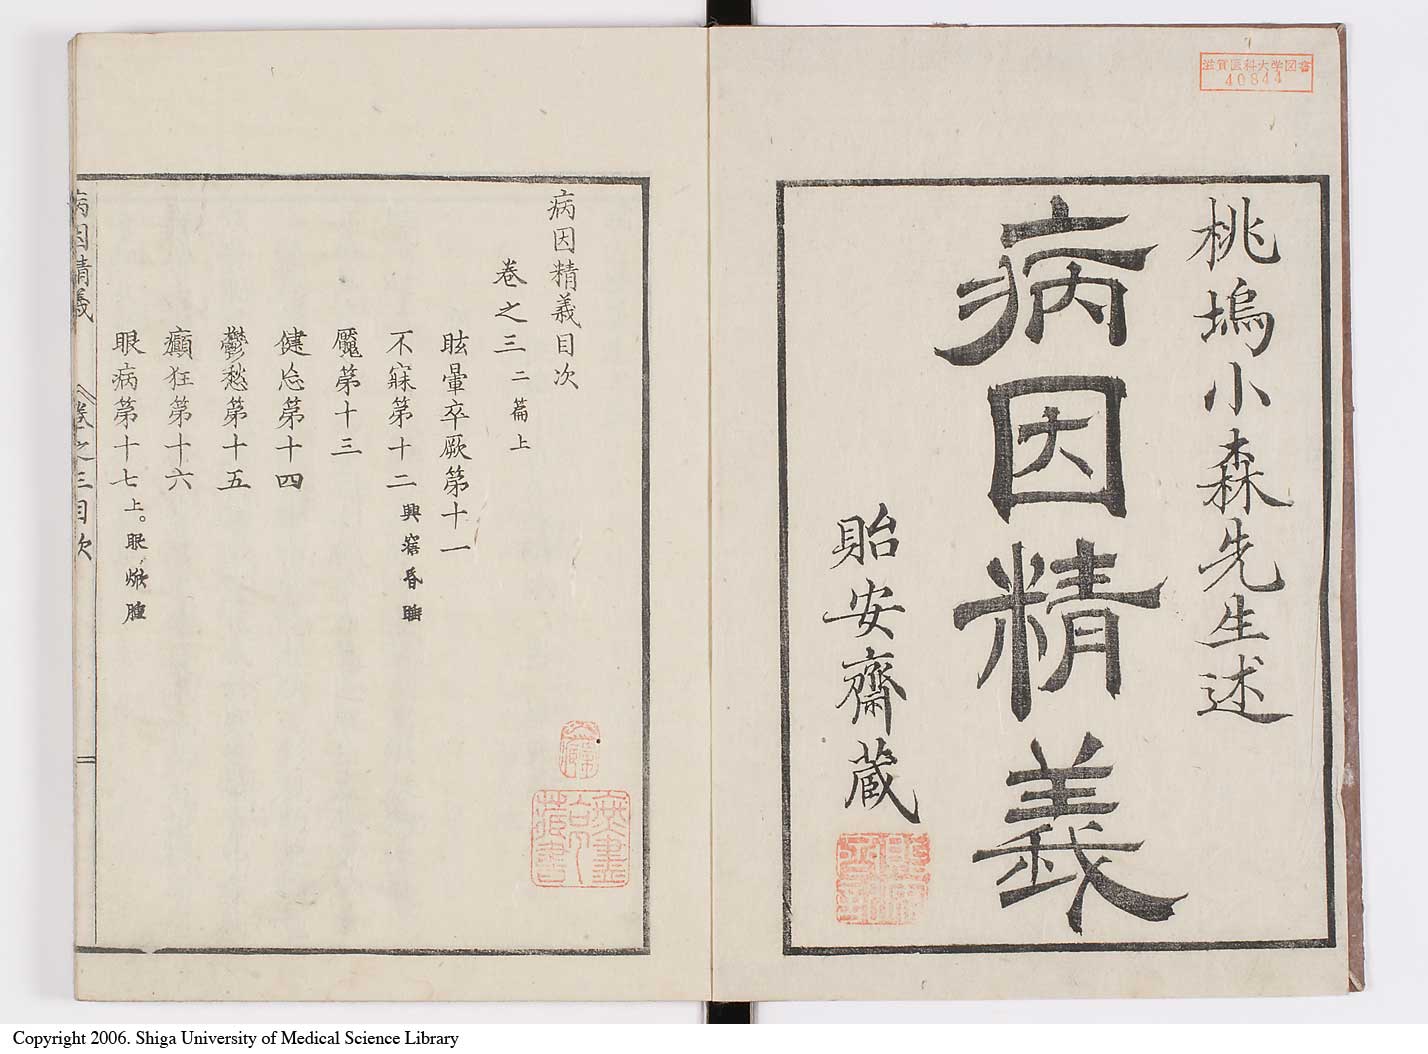 滋賀医科大学図書
40844
桃塢小森先生述
病因精義
貽安齋蔵
病因精義目次
卷之三二篇上
眩暈卒厥第十一
不寐第十二
魘第十三
健忘第十四
鬱愁第十五
癲狂第十六
眼病第十七上。眼焮腫
病因精義 卷之三目次
Copyright 2006. Shiga University of Medical Science Library